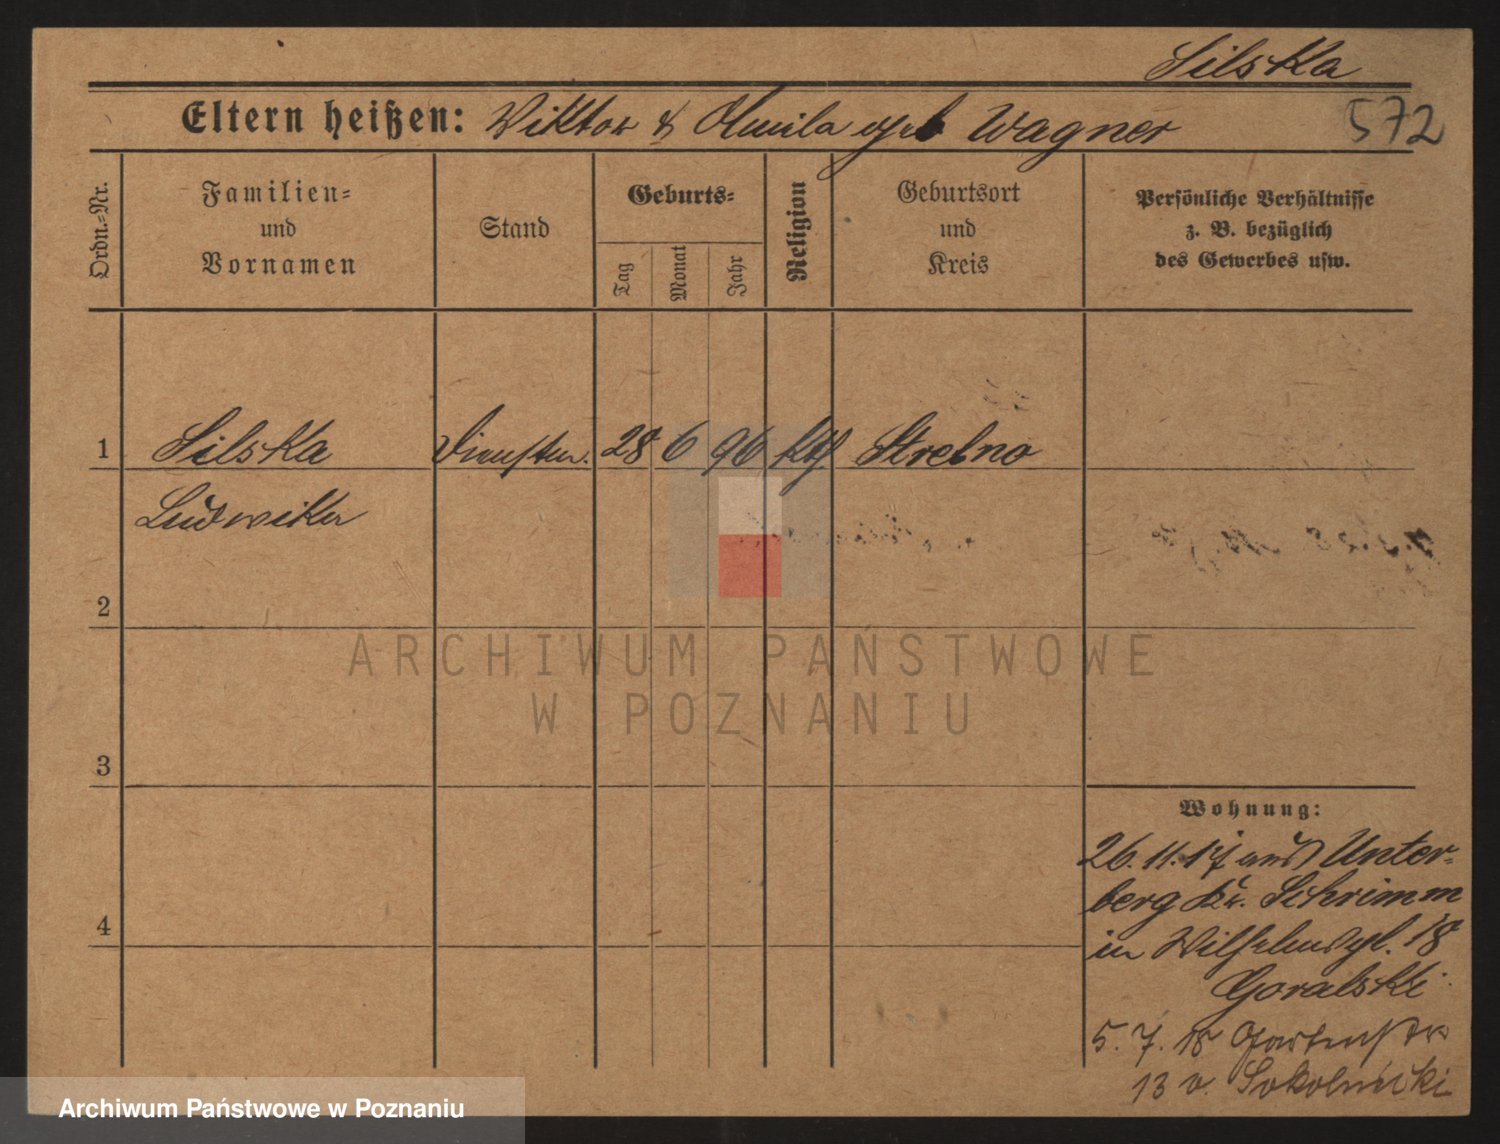 Silska
Eltern heißen: Viktor & geb Wagner
572
Ordn.-Nr.
Familien-
und
Vornamen
Stand
Geburts-
Tag
Monat
Jahr
Religion
Geburtsort
und
Kreis
Persönliche Verhältnisse
z. B. bezüglich
des Gewerbes usw.
1 Silska Dienstm. 28 6 96 kth Strelno
Ludwika
2
ARCHIWUM PAŃSTWOWE
W POZNANIU
3
Wohnung:
26.11.17 aus Unter-
berg Kr. Schrimm
4
in Wilhelmspl. 18
Goralski
5. 7. 18 Gartenstr
13 v. Sokolnicki
Archiwum Państwowe w Poznaniu